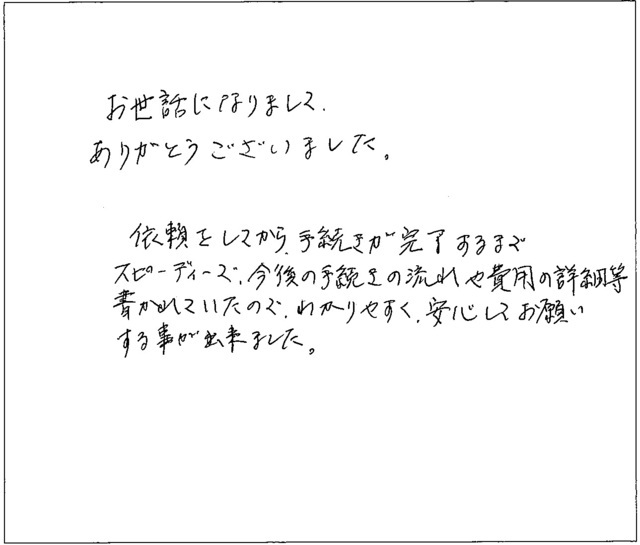 お世話になりまして、
ありがとうございました。
依頼をしてから、手続きが完了するまで
スピーディーで、今後の手続きの流れや費用の詳細等
書かれていたので、わかりやすく、安心してお願い
する事が出来ました。